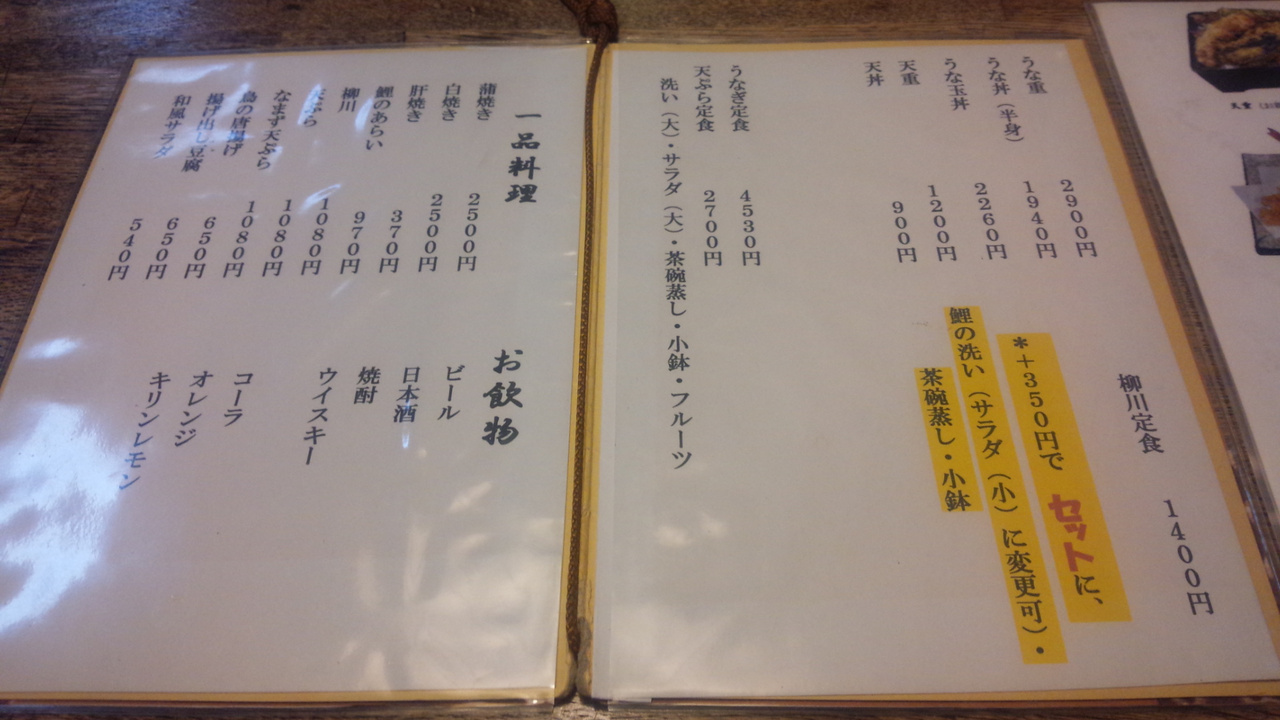 うな重 2900円
うな丼(半身) 1940円
うな玉丼 2260円
天重 1200円
天丼 900円
柳川定食 1400円
*+350円で セットに、
鯉の洗い(サラダ(小)に変更可)・
茶碗蒸し・小鉢
うなぎ定食 4530円
天ぷら定食 2700円
洗い(大)・サラダ(大)・茶碗蒸し・小鉢・フルーツ
一品料理
蒲焼き 2500円
白焼き 2500円
肝焼き 370円
鯉のあらい 970円
柳川 1080円
天ぷら 1080円
なまず天ぷら 1080円
鳥の唐揚げ 650円
揚げ出し豆腐 650円
和風サラダ 540円
お飲物
ビール
日本酒
焼酎
ウイスキー
コーラ
オレンジ
キリンレモン